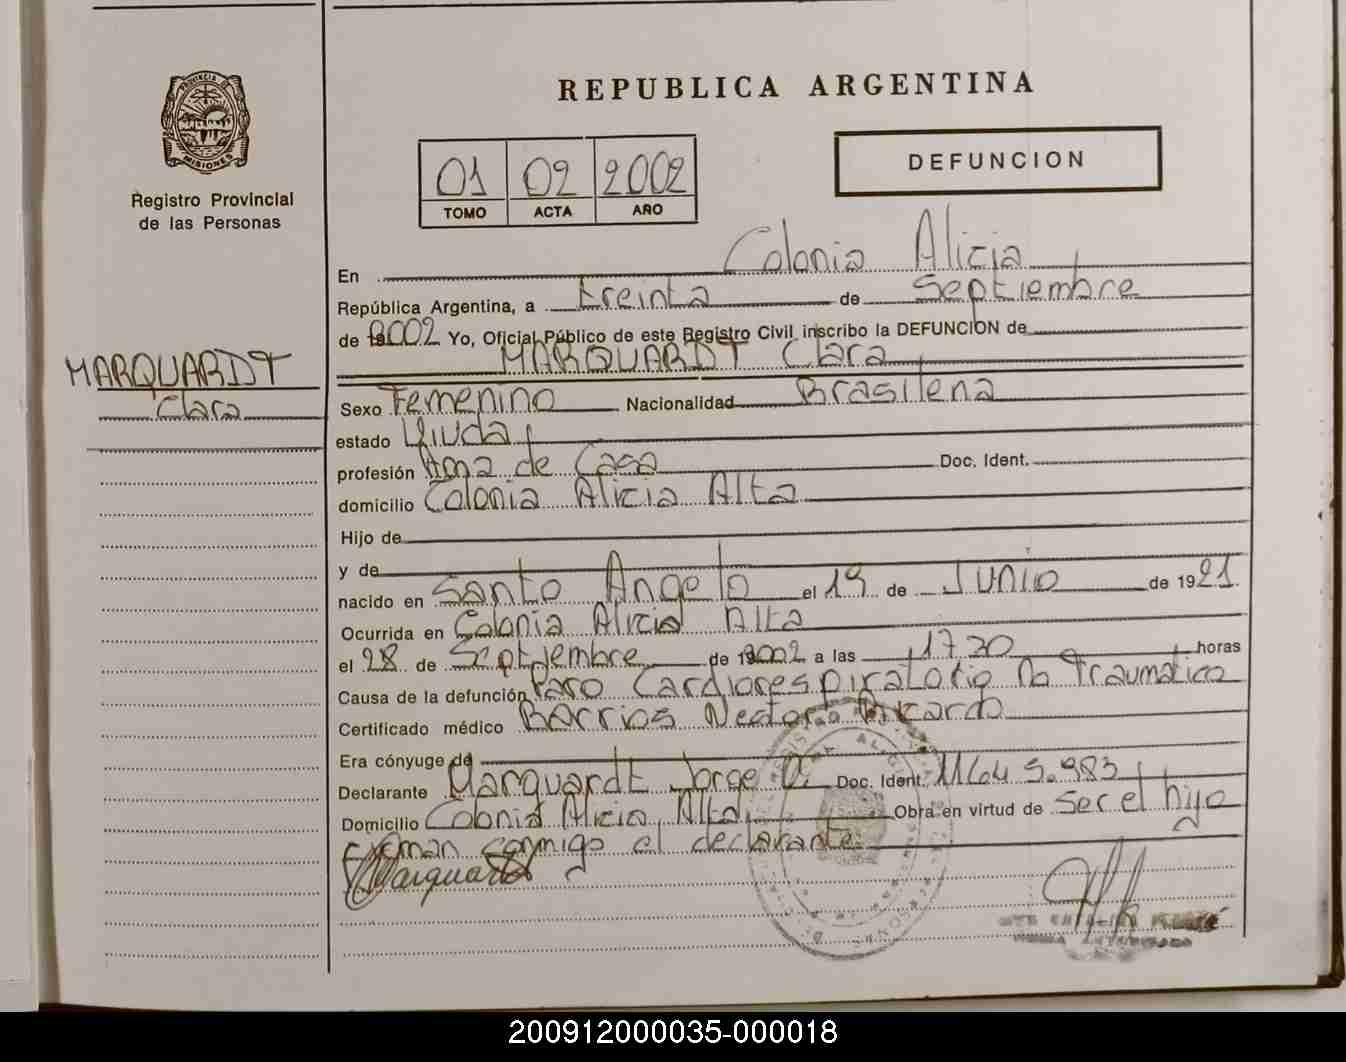 PROVINCIA DE
MISIONES
Registro Provincial
de las Personas
MARQUARDT
Clara
REPUBLICA ARGENTINA
01 02 2002
TOMO ACTA AÑO
DEFUNCION
En Colonia Alicia
República Argentina, a treinta de Septiembre
de 2002 Yo, Oficial Público de este Registro Civil inscribo la DEFUNCION de
MARQUARDT Clara
Sexo Femenino Nacionalidad Brasilena
estado Viuda
profesión Ama de Casa Doc. Ident.
domicilio Colonia Alicia Alta
Hijo de
y de
nacido en Santo Angelo el 19 de Junio de 1921.
Ocurrida en Colonia Alicia Alta
el 28 de Septiembre de 2002 a las 17 30 horas
Causa de la defunción Paro Cardiorespiratorio No Traumatico
Certificado médico Barrios Nestor Ricardo
Era cónyuge de
Declarante Marquardt Jorge O. Doc. Ident. 11645.983
Domicilio Colonia Alicia Alta Obra en virtud de Ser el hijo
Firman conmigo el declarante
Marquardt
200912000035-000018